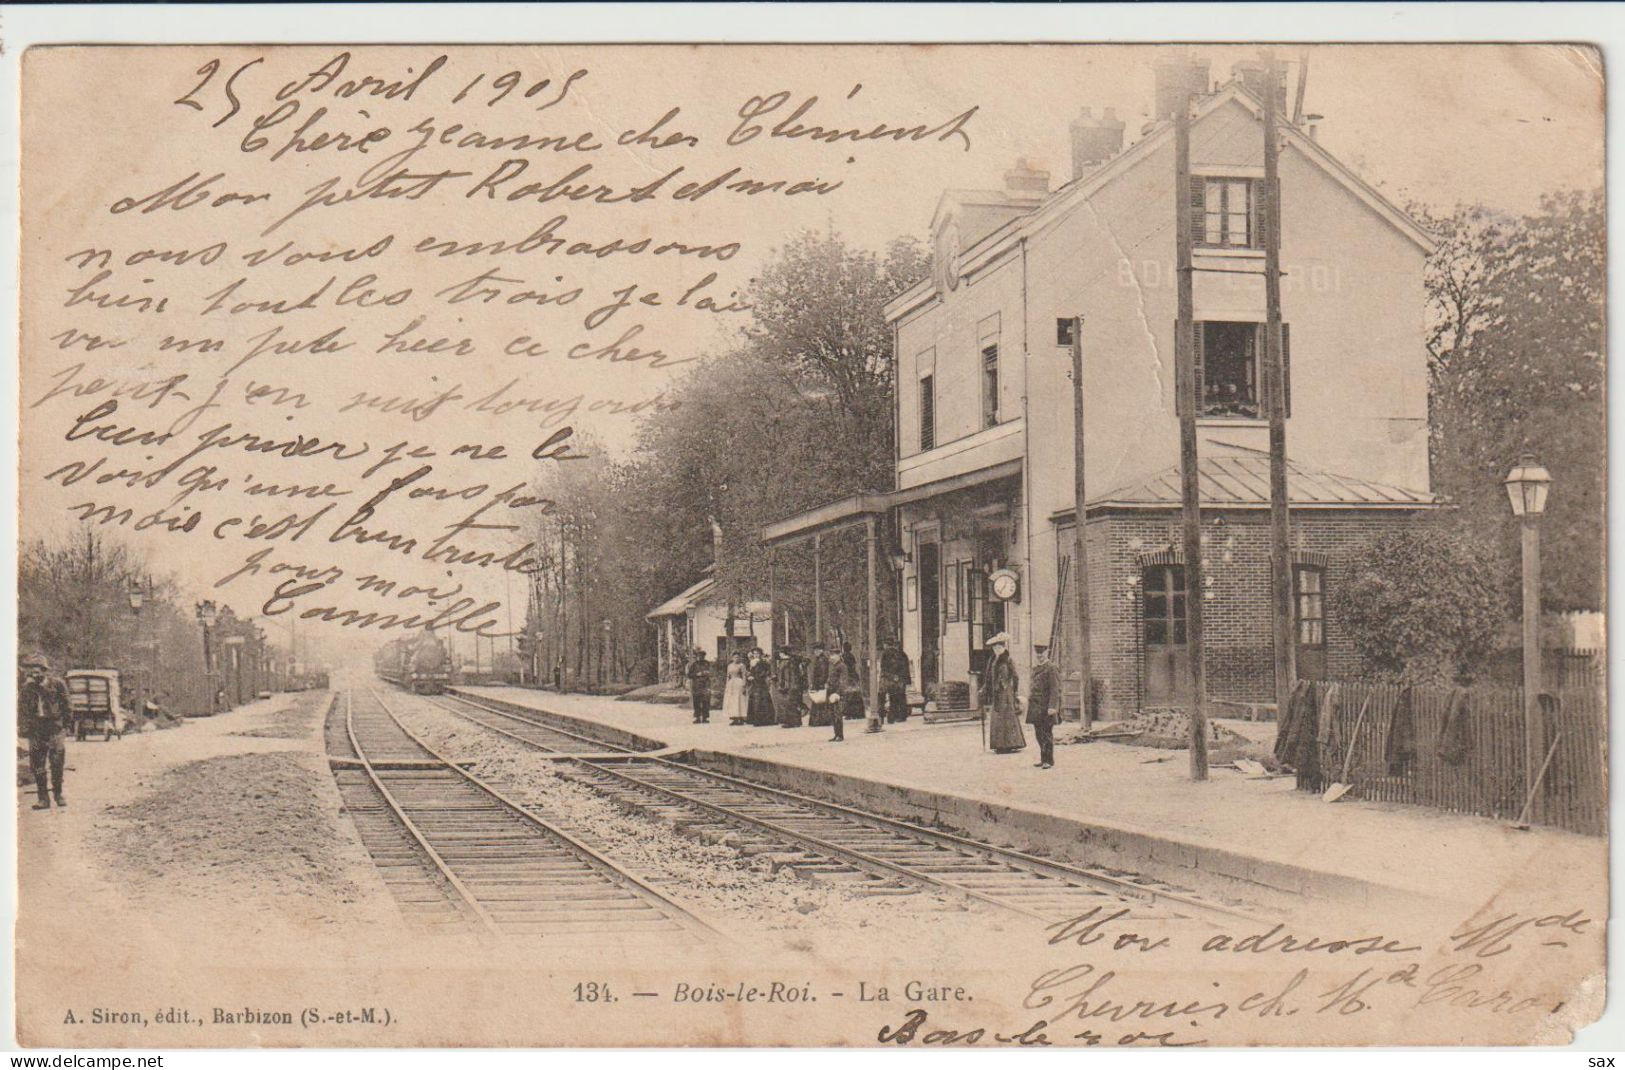 25 Avril 1905
Chère Jeanne cher Clément
Mon petit Robert et moi
nous vous embrassons
bien tout les trois je l'ai
vu un peu hier ce cher
petit j'en suis toujours
bien priver je ne le
vois qu'une fois par
mois c'est bien triste
pour moi
Camille
BOIS-LE-ROI
134. — Bois-le-Roi. - La Gare.
A. Siron, édit., Barbizon (S.-et-M.).
Mon adresse Mde
ch. Md
Bois-le roi
sax
www.delcampe.net